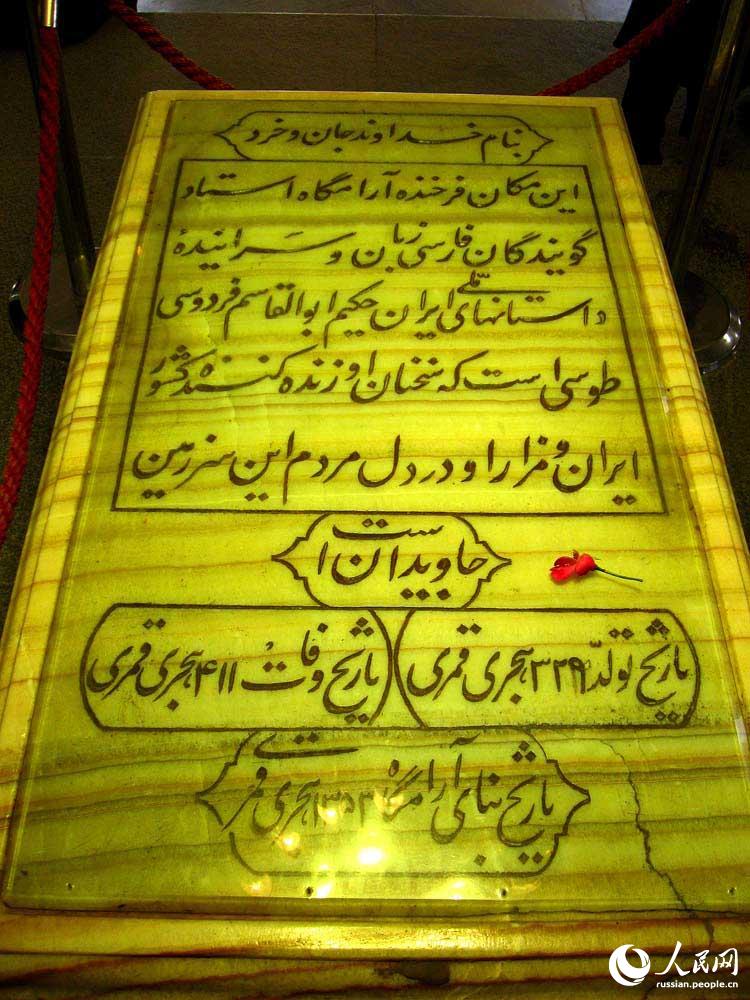 بنام خداوند جان و خرد
این مکان فرخنده آرامگاه استاد
گویندگان فارسی زبان و سَرایندهٔ
داستانهای ملّی ایران حکیم ابوالقاسم فردوسی
طوسی است که سخنان او زنده کنندهٔ کشور
ایران و مزار او در دل مردم این سرزمین
جاویدان است
تاریخ تولّد ۳۲۹ هجری قمری
تاریخ وفات ۴۱۱ هجری قمری
تاریخ بنای آرامگاه ۱۳۵۳ هجری قمری
人民网
russian.people.cn